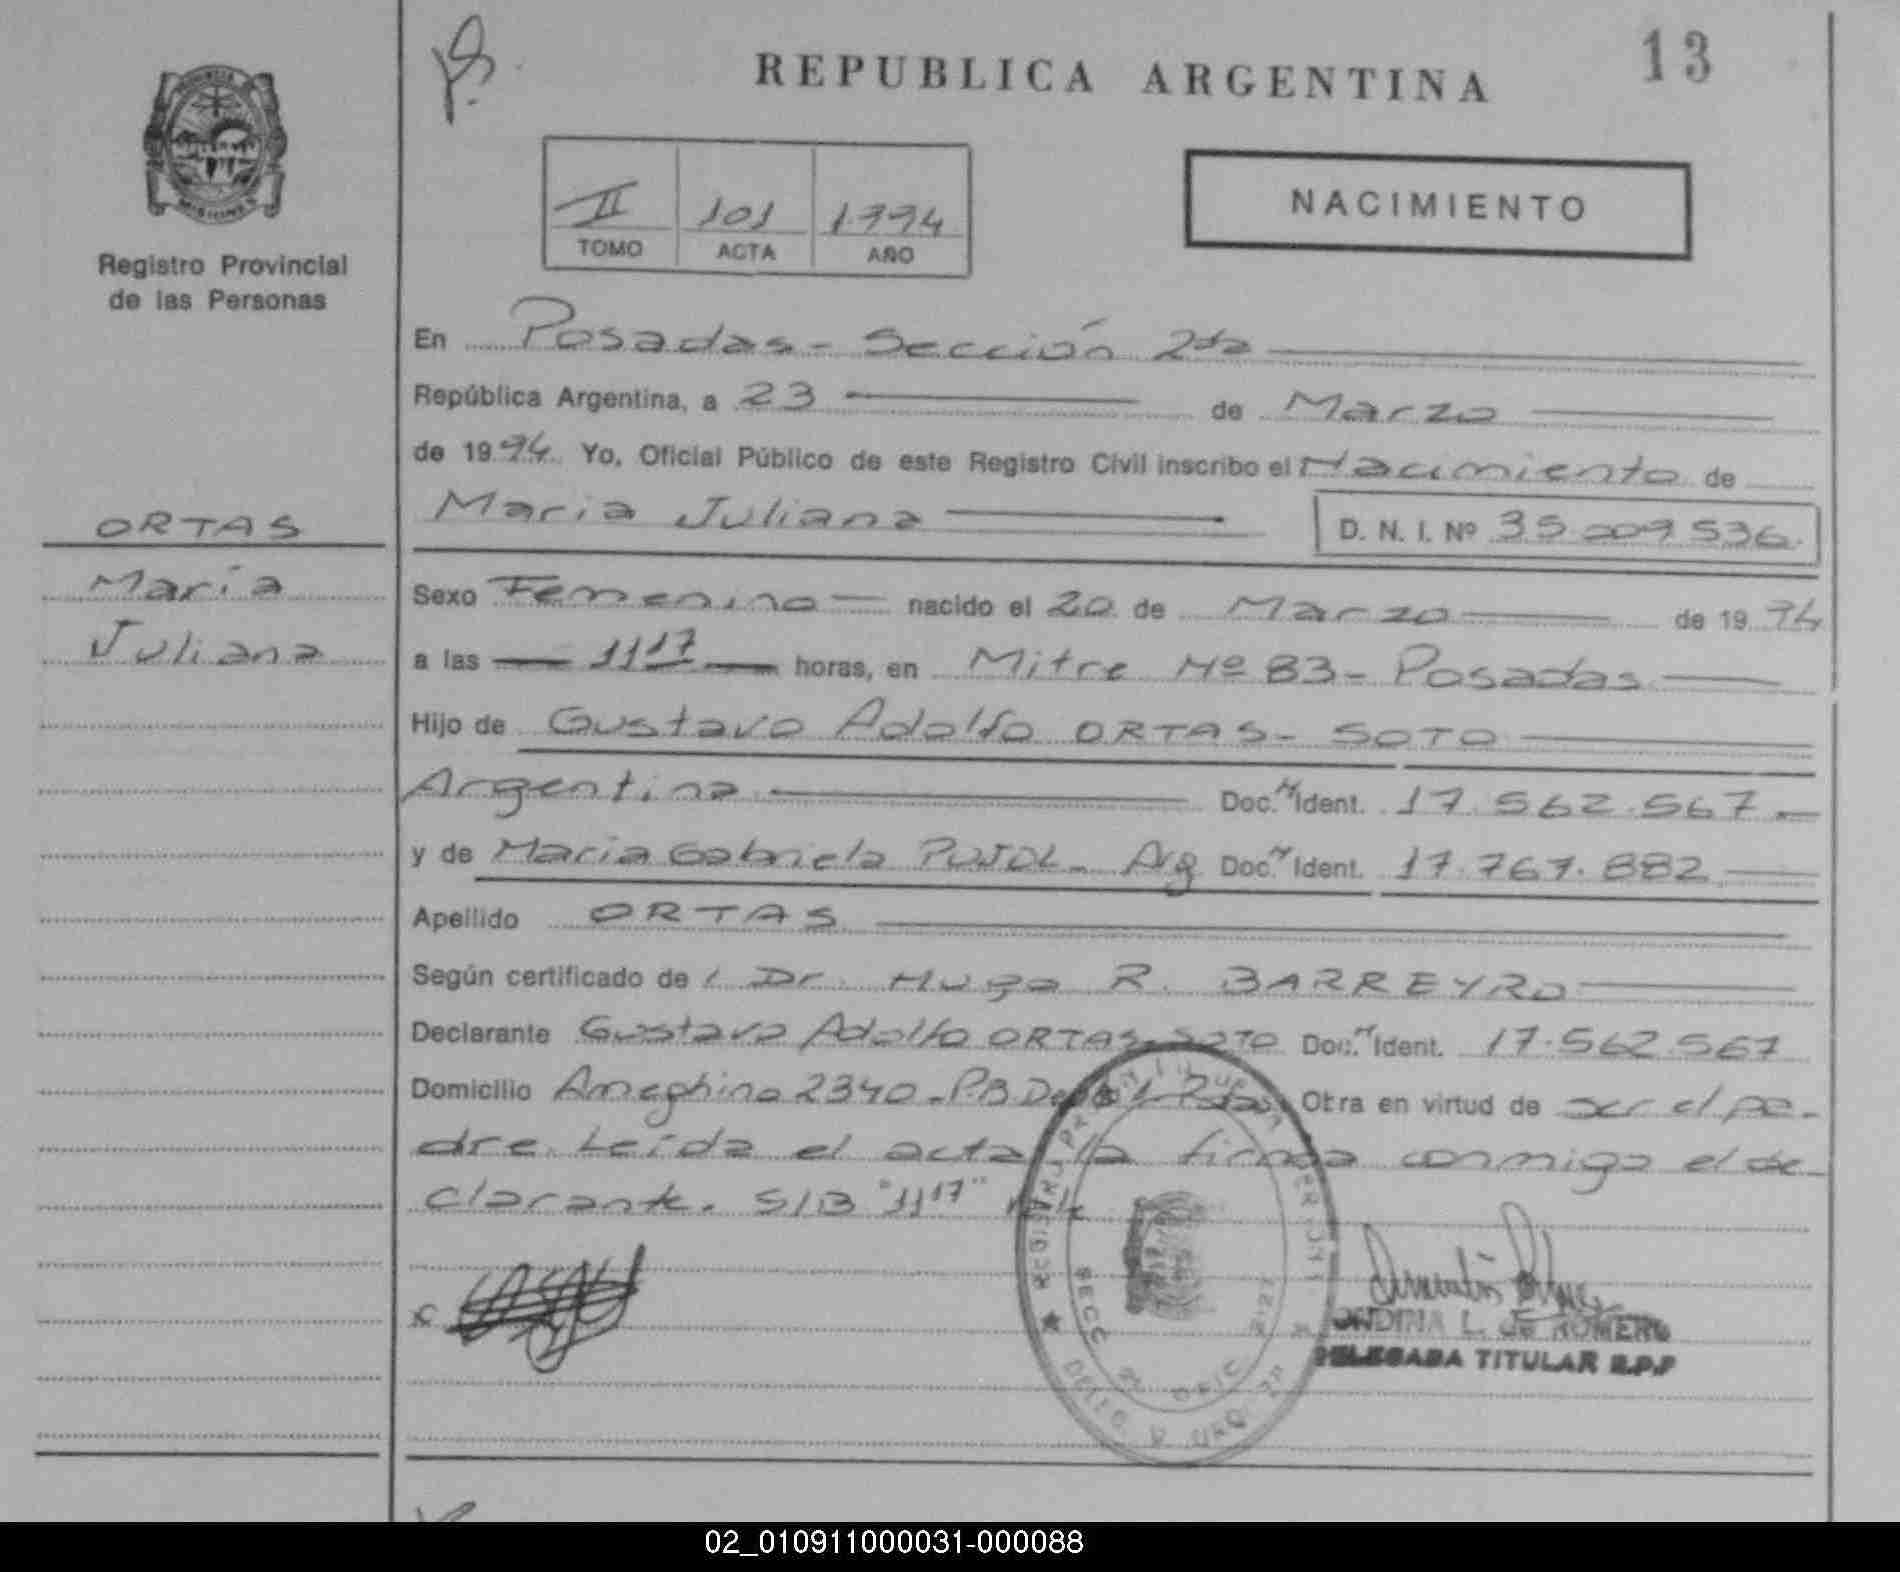 REPUBLICA ARGENTINA
13
Registro Provincial
de las Personas
II 101 1994
TOMO ACTA AÑO
NACIMIENTO
En Posadas - Sección 2da
República Argentina, a 23 de Marzo
de 1994 Yo, Oficial Público de este Registro Civil inscribo el Nacimiento de
Maria Juliana D. N. I. Nº 35.009.536.
ORTAS
María
Juliana
Sexo Femenino nacido el 20 de Marzo de 1994
a las 11 17 horas, en Mitre Nº 83 - Posadas
Hijo de Gustavo Adolfo ORTAS - SOTO
Argentina Doc. N Ident. 17.562.567
y de Maria Gabriela PUJOL - Arg Doc. N Ident. 17.767.882
Apellido ORTAS
Según certificado de Dr. Hugo R. BARREYRO
Declarante Gustavo Adolfo ORTAS - SOTO Doc. N Ident. 17.562.567
Domicilio Ameghino 2340 - P.B. Otra en virtud de ser el pa-
dre. Leída el acta la firma conmigo el de-
clarante. S/B "11 17"
ONDINA L. DE ROMERO
DELEGADA TITULAR R.P.P
SECC 2ª
02_010911000031-000088